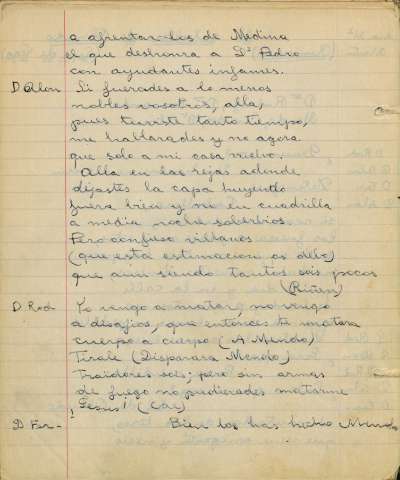 a afrentar los de Medina
el que deshonra a Dⁿ Pedro
con ayudantes infames.
D Alon Si fuerades a lo menos
nobles vosotros, alla,
pues tuviste tanto tiempo,
me hablarades y no agora
que solo a mi casa vuelvo.
Alla en las rejas adonde
dejastes la capa huyendo
fuera bien y no en cuadrilla
a media noche soberbios.
Pero confieso villanos
(que esta estimacion os debo)
que aun siendo tantos sois pocos
(Riñen)
D Rod Yo vengo a matar, no vengo
a desafios, que entonces te matara
cuerpo a cuerpo (A Mendo)
Tirale (Disparara Mendo)
Traidores sois; pero sin armas
de fuego no pudierades matarme
¡Jesus! (Cae)
D Fer- Bien lo has hecho Mendo